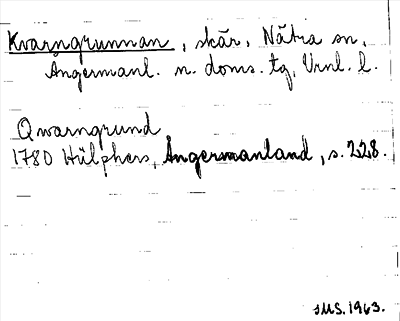 Kvarngrunnan, skär, Nätra sn,
Ångermanl. n. doms. tg, Vrnl. l.
Qwarngrund
1780 Hülphers, Ångermanland, s. 228.
JMS. 1963.